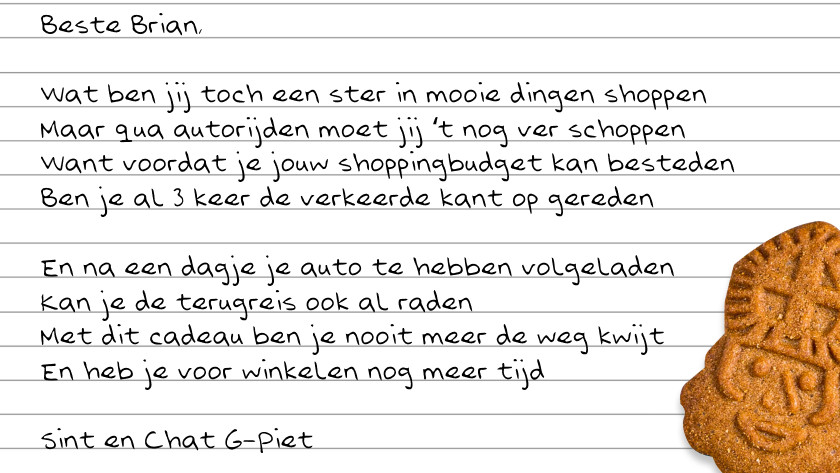 Beste Brian,
Wat ben jij toch een ster in mooie dingen shoppen
Maar qua autorijden moet jij 't nog ver schoppen
Want voordat je jouw shoppingbudget kan besteden
Ben je al 3 keer de verkeerde kant op gereden
En na een dagje je auto te hebben volgeladen
Kan je de terugreis ook al raden
Met dit cadeau ben je nooit meer de weg kwijt
En heb je voor winkelen nog meer tijd
Sint en Chat G-Piet